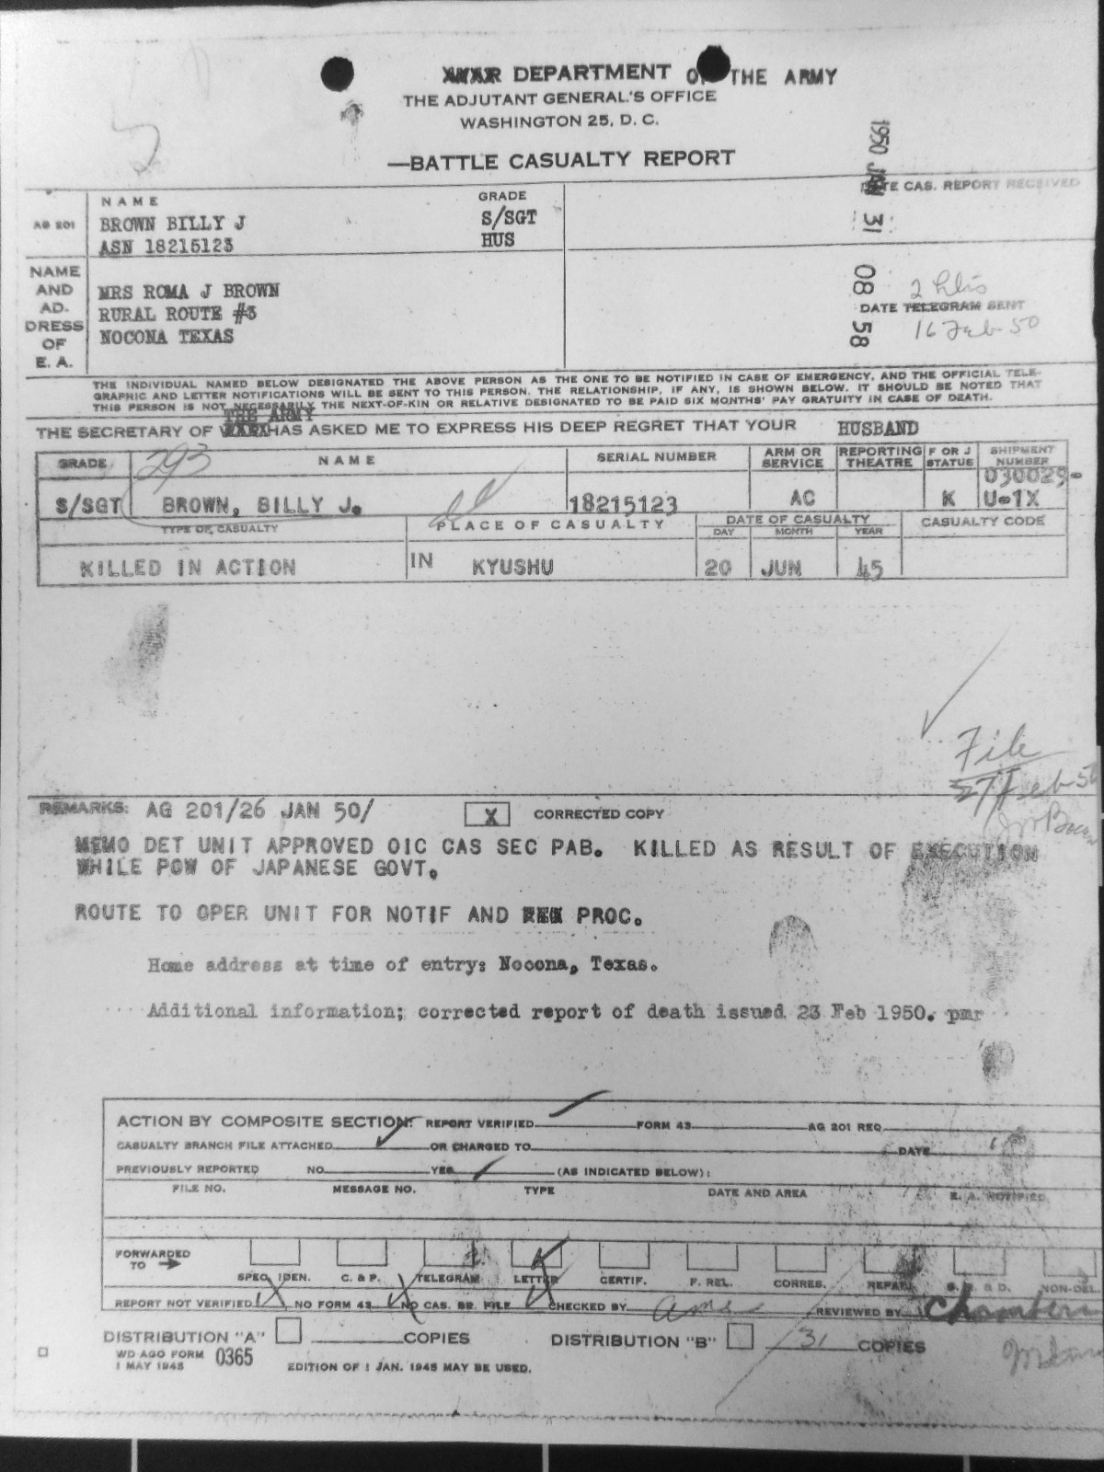 DEPARTMENT OF THE ARMY
THE ADJUTANT GENERAL'S OFFICE
WASHINGTON 25, D. C.
—BATTLE CASUALTY REPORT
1950 JAN 31 08 58
DATE CAS. REPORT RECEIVED
AG 201
NAME
GRADE
BROWN BILLY J
S/SGT
ASN 18215123
HUS
NAME AND AD. DRESS OF E. A.
MRS ROMA J BROWN
RURAL ROUTE #3
NOCONA TEXAS
DATE TELEGRAM SENT
16 Feb 50
THE INDIVIDUAL NAMED BELOW DESIGNATED THE ABOVE PERSON AS THE ONE TO BE NOTIFIED IN CASE OF EMERGENCY, AND THE OFFICIAL TELE-
GRAPHIC AND LETTER NOTIFICATIONS WILL BE SENT TO THIS PERSON. THE RELATIONSHIP, IF ANY, IS SHOWN BELOW. IT SHOULD BE NOTED THAT
THIS PERSON IS NOT NECESSARILY THE NEXT-OF-KIN OR RELATIVE DESIGNATED TO BE PAID SIX MONTHS' PAY GRATUITY IN CASE OF DEATH.
THE ARMY
THE SECRETARY OF HAS ASKED ME TO EXPRESS HIS DEEP REGRET THAT YOUR HUSBAND
GRADE 293 NAME SERIAL NUMBER ARM OR SERVICE REPORTING THEATRE F OR J STATUE SHIPMENT NUMBER
030029-
S/SGT BROWN, BILLY J. 18215123 AC K U-1X
TYPE OF CASUALTY PLACE OF CASUALTY DATE OF CASUALTY CASUALTY CODE
DAY MONTH YEAR
KILLED IN ACTION IN KYUSHU 20 JUN 45
File
27 Feb 50
REMARKS: AG 201/26 JAN 50/ X CORRECTED COPY
MEMO DET UNIT APPROVED OIC CAS SEC PAB. KILLED AS RESULT OF EXECUTION
WHILE POW OF JAPANESE GOVT.
ROUTE TO OPER UNIT FOR NOTIF AND PROC.
Home address at time of entry: Nocona, Texas.
Additional information; corrected report of death issued 23 Feb 1950. pmr
ACTION BY COMPOSITE SECTION: REPORT VERIFIED FORM 43 AG 201 REQ
CASUALTY BRANCH FILE ATTACHED OR CHARGED TO DATE
PREVIOUSLY REPORTED NO YES (AS INDICATED BELOW):
FILE NO. MESSAGE NO. TYPE DATE AND AREA E. A. NOTIFIED
FORWARDED TO
SPEC. IDEN. C. & P. TELEGRAM LETTER CERTIF. F. REL. CORRES. REPAT. NON-DEL.
REPORT NOT VERIFIED NO FORM 43 NO CAS. BR. FILE CHECKED BY ame REVIEWED BY Chambers
DISTRIBUTION "A" COPIES DISTRIBUTION "B" 31 COPIES
WD AGO FORM 0365
1 MAY 1945
EDITION OF 1 JAN. 1945 MAY BE USED.